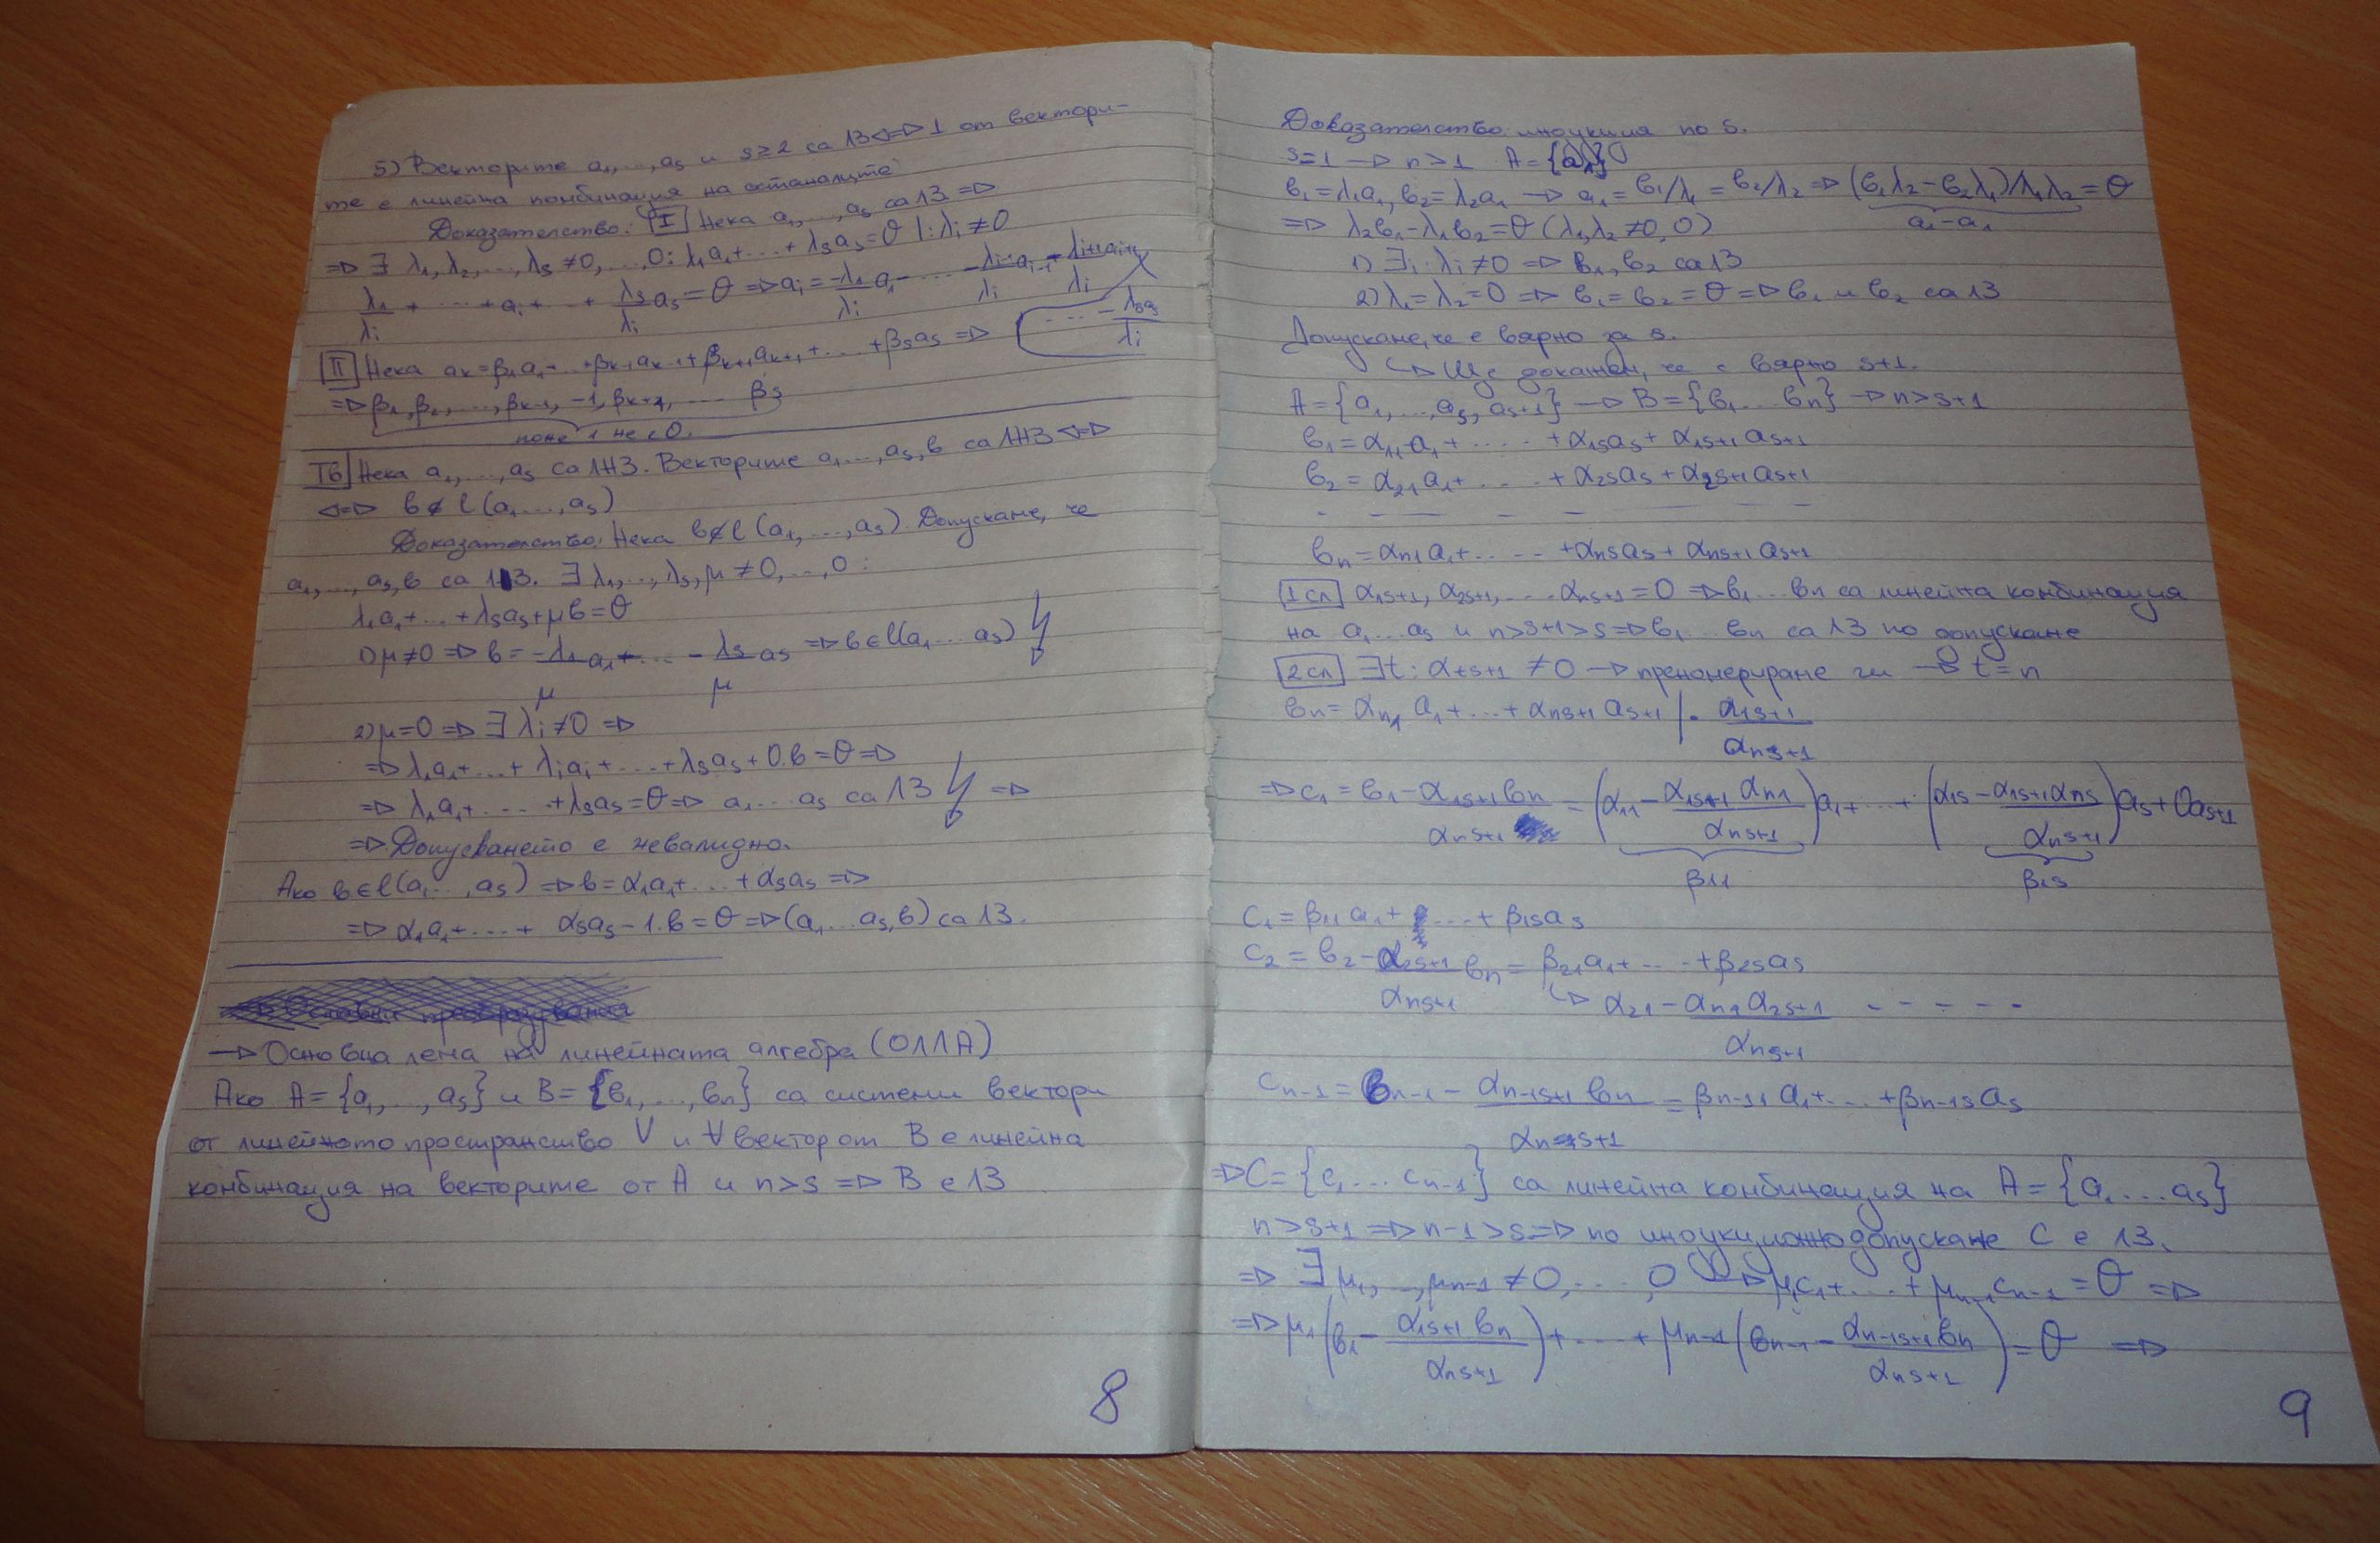 5) Векторите a₁,...,aₛ и s≥2 са ЛЗ <=> 1 от вектори-
те е линейна комбинация на останалите
Доказателство: I Нека a₁,...,aₛ са ЛЗ =>
=> ∃ λ₁,λ₂,...,λₛ ≠ 0,...,0: λ₁a₁+...+λₛaₛ=θ |:λᵢ≠0
λ₁/λᵢ + ... + aᵢ + ... + λₛ/λᵢ aₛ = θ => aᵢ = -λ₁/λᵢ a₁ - ... - λᵢ₋₁aᵢ₋₁/λᵢ - λᵢ₊₁aᵢ₊₁/λᵢ
... - λₛaₛ/λᵢ
II Нека aₖ=β₁a₁+...+βₖ₋₁aₖ₋₁+βₖ₊₁aₖ₊₁+...+βₛaₛ =>
=> β₁,β₂,...,βₖ₋₁,-1,βₖ₊₁,... βₛ
поне 1 не е 0.
Тв Нека a₁,...,aₛ са ЛНЗ. Векторите a₁...,aₛ,b са ЛНЗ <=>
<=> b∉l(a₁...,aₛ)
Доказателство: Нека b∉l(a₁,...,aₛ) Допускаме, че
a₁,...,aₛ,b са ЛЗ. ∃ λ₁,...,λₛ,μ ≠ 0,...,0:
λ₁a₁+...+λₛaₛ+μb=θ
1) μ≠0 => b = -λ₁/μ a₁ + ... - λₛ/μ aₛ => b∈l(a₁...aₛ) ↯
2) μ=0 => ∃ λᵢ≠0 =>
=> λ₁a₁+...+λᵢaᵢ+...+λₛaₛ+0.b=θ =>
=> λ₁a₁+...+λₛaₛ=θ => a₁...aₛ са ЛЗ ↯ =>
=> Допускането е невалидно.
Ако b∈l(a₁...,aₛ) => b=α₁a₁+...+αₛaₛ =>
=> α₁a₁+...+ αₛaₛ-1.b=θ => (a₁...aₛ,b) са ЛЗ.
-> Основна лема на линейната алгебра (ОЛЛА)
Ако A={a₁,...,aₛ} и B={b₁,...,bₙ} са системи вектори
от линейното пространство V и ∀ вектор от B е линейна
комбинация на векторите от A и n>s => B е ЛЗ
8
Доказателство: индукция по s.
s=1 -> n>1 A={a₁}
b₁=λ₁a₁, b₂=λ₂a₁ -> a₁=b₁/λ₁=b₂/λ₂ => (b₁λ₂-b₂λ₁)/λ₁λ₂=θ
=> λ₂b₁-λ₁b₂=θ (λ₁,λ₂≠0,0) a₁-a₁
1) ∃ᵢ: λᵢ≠0 => b₁,b₂ са ЛЗ
2) λ₁=λ₂=0 => b₁=b₂=θ => b₁ и b₂ са ЛЗ
Допускаме, че е вярно за s.
↳ Ще докажем, че е вярно s+1.
A={a₁,...,aₛ,aₛ₊₁} -> B={b₁...bₙ} -> n>s+1
b₁=α₁₁a₁+.....+α₁ₛaₛ+α₁ₛ₊₁aₛ₊₁
b₂=α₂₁a₁+.....+α₂ₛaₛ+α₂ₛ₊₁aₛ₊₁
- - - - - - - -
bₙ=αₙ₁a₁+.....+αₙₛaₛ+αₙₛ₊₁aₛ₊₁
1сл α₁ₛ₊₁,α₂ₛ₊₁,...αₙₛ₊₁=0 => b₁...bₙ са линейна комбинация
на a₁...aₛ и n>s+1>s => b₁...bₙ са ЛЗ по допускане
2сл ∃t: αₜₛ₊₁≠0 -> преномерираме ги -> t=n
bₙ=αₙ₁a₁+...+αₙₛ₊₁aₛ₊₁ |. α₁ₛ₊₁/αₙₛ₊₁
=> c₁=b₁-α₁ₛ₊₁bₙ/αₙₛ₊₁ = (α₁₁-α₁ₛ₊₁αₙ₁/αₙₛ₊₁)a₁+...+(α₁ₛ-α₁ₛ₊₁αₙₛ/αₙₛ₊₁)aₛ+0aₛ₊₁
β₁₁ β₁ₛ
c₁=β₁₁a₁+...+β₁ₛaₛ
c₂=b₂-α₂ₛ₊₁/αₙₛ₊₁ bₙ=β₂₁a₁+...+β₂ₛaₛ
↳ α₂₁-αₙ₁α₂ₛ₊₁/αₙₛ₊₁ - - - - -
cₙ₋₁=bₙ₋₁-αₙ₋₁ₛ₊₁bₙ/αₙₛ₊₁=βₙ₋₁₁a₁+...+βₙ₋₁ₛaₛ
=> C={c₁...cₙ₋₁} са линейна комбинация на A={a₁...aₛ}
n>s+1 => n-1>s => по индукционно допускане C е ЛЗ.
=> ∃ μ₁,...,μₙ₋₁≠0,...,0 -> μ₁c₁+...+μₙ₋₁cₙ₋₁=θ =>
=> μ₁(b₁-α₁ₛ₊₁bₙ/αₙₛ₊₁)+...+μₙ₋₁(bₙ₋₁-αₙ₋₁ₛ₊₁bₙ/αₙₛ₊₁)=θ =>
9